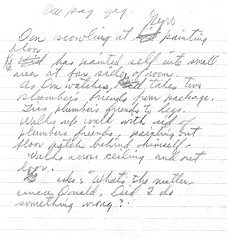 One pag gag.
Gyro
Don scowling at painting
floor
has painted self into small
area at far side of room.
As Don watches, takes two
plumber's friends from package.
Ties plumber's friends to legs.
Walks up wall with aid of
plumbers friends, painting out
floor patch behind himself.
Walks across ceiling and out
door.
asks: "What's the matter,
Donald, Did I do
something wrong?"